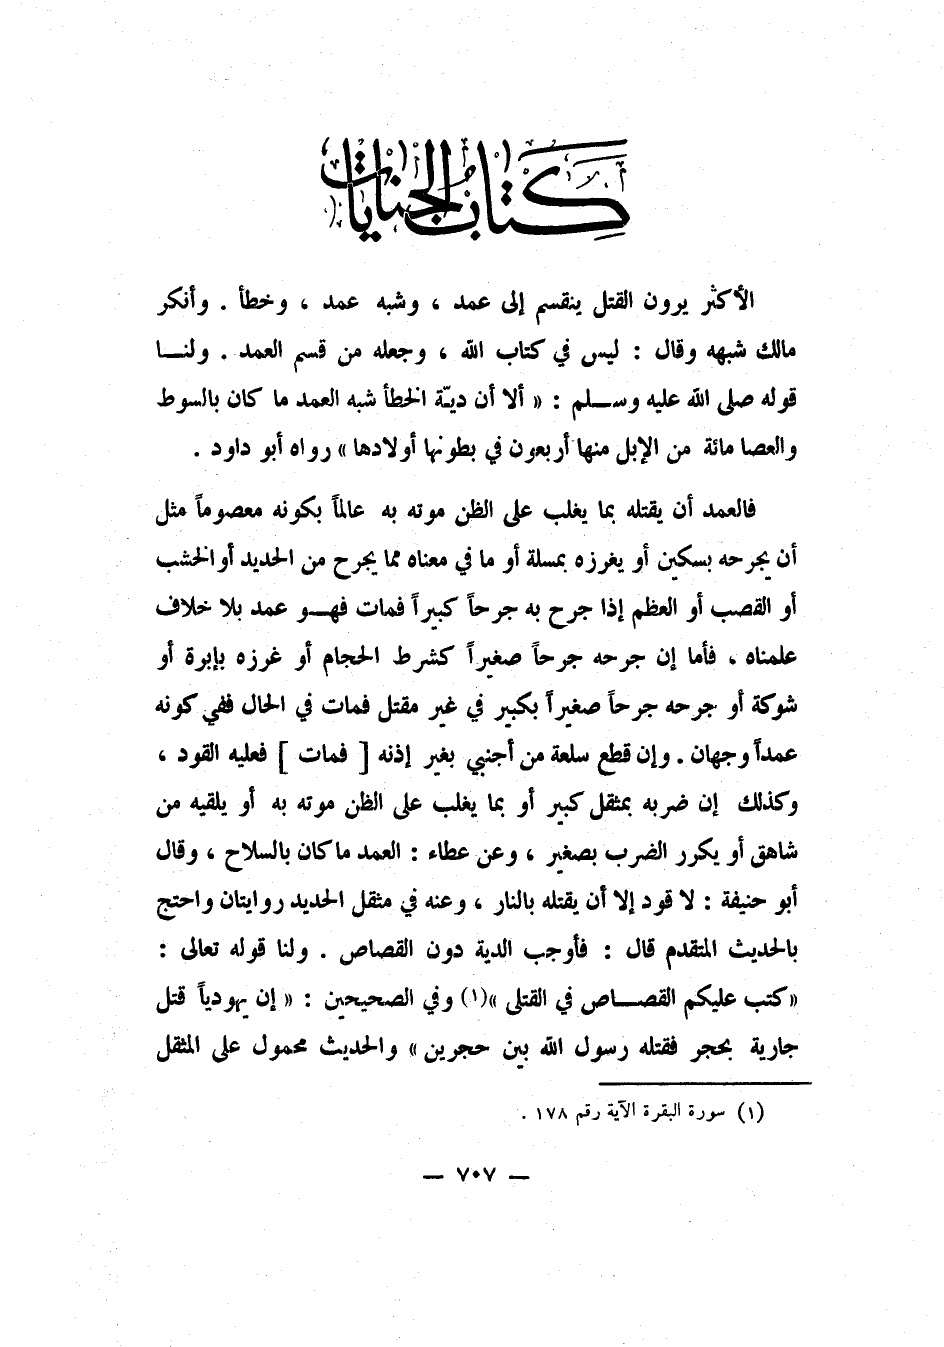 كتاب الجنايات
الأكثر يرون القتل ينقسم إلى عمد ، وشبه عمد ، وخطأ . وأنكر
مالك شبهه وقال : ليس في كتاب الله ، وجعله من قسم العمد . ولنــا
قوله صلى الله عليه وســلم : « ألا أن ديّة الخطأ شبه العمد ما كان بالسوط
والعصا مائة من الإبل منها أربعون في بطونها أولادها » رواه أبو داود .
فالعمد أن يقتله بما يغلب على الظن موته به عالماً بكونه معصوماً مثل
أن يجرحه بسكين أو يغرزه بمسلة أو ما في معناه مما يجرح من الحديد أو الخشب
أو القصب أو العظم إذا جرح به جرحاً كبيراً فمات فهــو عمد بلا خلاف
علمناه ، فأما إن جرحه جرحاً صغيراً كشرط الحجام أو غرزه بإبرة أو
شوكة أو جرحه جرحاً صغيراً بكبير في غير مقتل فمات في الحال ففي كونه
عمداً وجهان . وإن قطع سلعة من أجنبي بغير إذنه [ فمات ] فعليه القود ،
وكذلك إن ضربه بمثقل كبير أو بما يغلب على الظن موته به أو يلقيه من
شاهق أو يكرر الضرب بصغير ، وعن عطاء : العمد ما كان بالسلاح ، وقال
أبو حنيفة : لا قود إلا أن يقتله بالنار ، وعنه في مثقل الحديد روايتان واحتج
بالحديث المتقدم قال : فأوجب الدية دون القصاص . ولنا قوله تعالى :
« كتب عليكم القصــاص في القتلى »(١) وفي الصحيحين : « إن يهودياً قتل
جارية بحجر فقتله رسول الله بين حجرين » والحديث محمول على المثقل
(١) سورة البقرة الآية رقم ١٧٨ .
— ٧٠٧ —